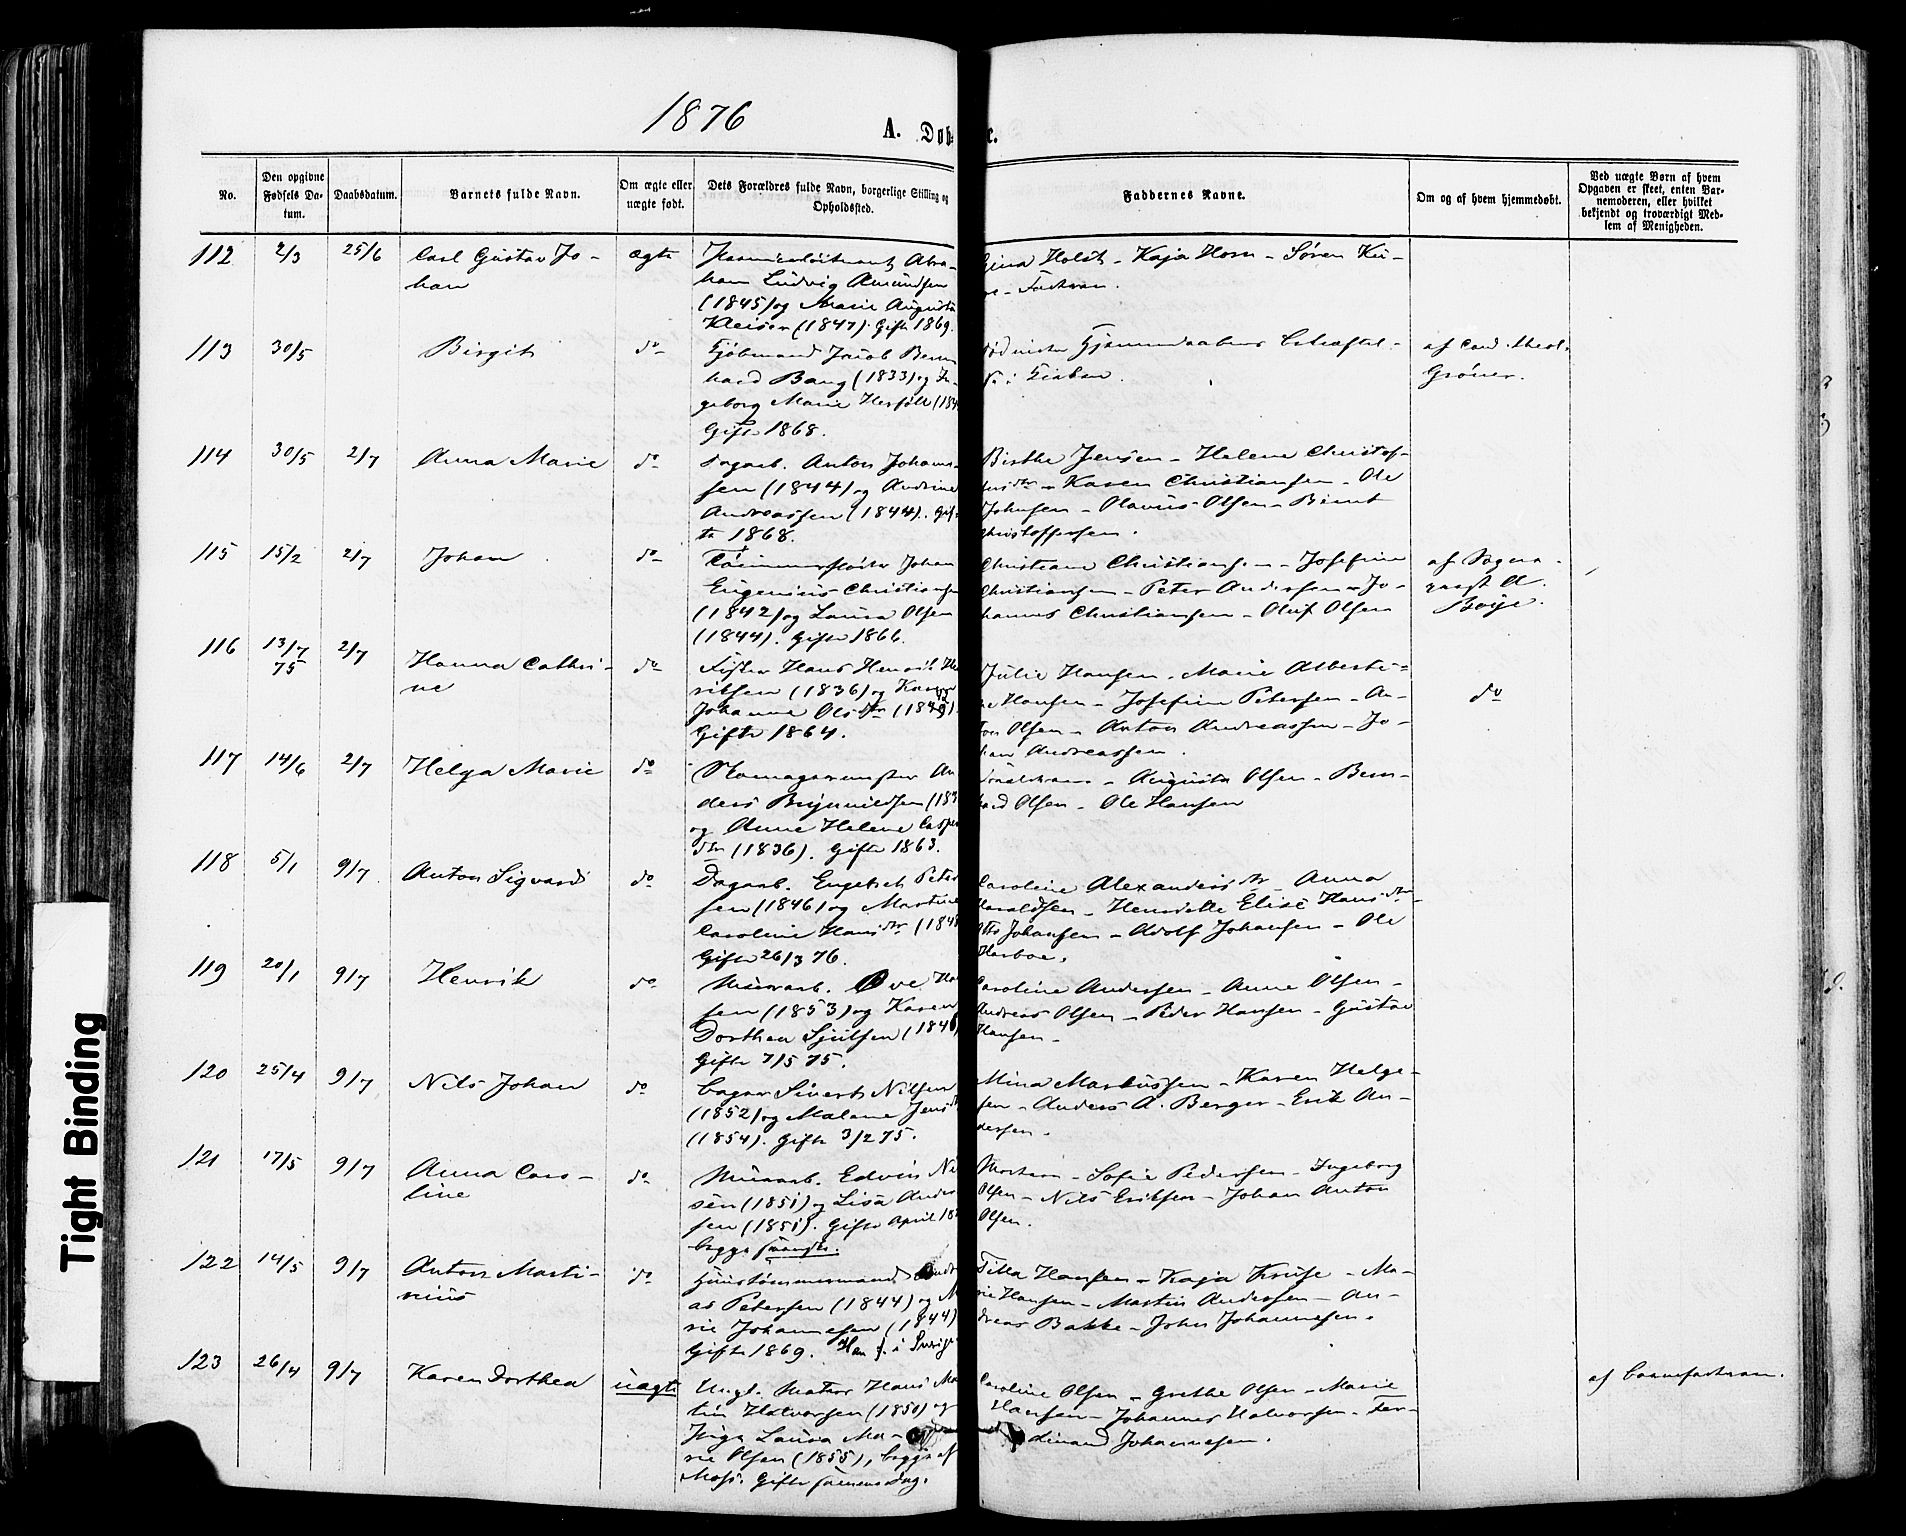 1876
A. Døb
e.
No.
Den opgivne Fødsels Datum.
Daabsdatum.
Barnets fulde Navn.
Om ægte eller uægte født.
Dets Forældres fulde Navn, borgerlige Stilling og Opholdssted.
Faddernes Navne.
Om og af hvem hjemmedøbt.
Ved uægte Børn af hvem Opgaven er skeet, enten Barnemoderen, eller hvilket bekjendt og troværdigt Medlem af Menigheden.
112 2/3 25/6 Carl Gustav Jo-
han
ægte
Abra-
ham Ludvig Amundsen
(1845) og Marie Augusta
(1847). Gift 1869.
Gina Holst - Kaja Horn - Søren
113 30/5 Birgit do
Jacob Bern
hard Bang (1833) og In-
geborg Marie (184
Gift 1868.
Hjemmedaabens
af Cand. theol.
Grøner.
114 30/5 2/7 Anna Marie do
Dagarb. Anton Johann-
sen (1844) og Andrine
Andreassen (1844). Gif-
te 1868.
Birthe Jensen - Helene Christof-
fersdtr - Karen Christiansen - Ole
Johnsen - Olavus Olsen - Bernt
Christoffersen.
115 15/2 2/7 Johan do
Johan
Eugenius Christiansen
(1842) og Laura Olsen
(1844). Gift 1866.
Christiane Christiansen - Josefine
Christiansen - Peter Andersen - Jo-
hannes Christiansen - Oluf Olsen
af Sogne-
præst A.
Boije.
116 13/7 75 2/7 Hanna Cathri-
ne
do
Fisker Hans Henrik He
riksen (1836) og Karen
Johanne Olsdtr (1840).
Gifte 1864.
Julie Hansen - Marie Alberti-
ne Hansen - Josefine Petersen - An-
ton Olsen - Anton Andreassen - Jo-
han Andreassen.
do
117 14/6 2/7 Helga Marie do
An-
ders Brynildsen (183
og Anne Helene Casper
dtr (1836). Gifte 1863.
Augusta Olsen - Bern-
hard Olsen - Ole Hansen
118 5/1 9/7 Anton Sigvard do
Dagarb. Engebret Peter
sen (1846) og Martine
Caroline Hansdtr (1848
Gifte 26/3 76.
Caroline Alexandersdtr - Anna
Haraldsen - Henriette Elise Hansdtr -
Johansen - Adolf Johansen - Ole
Herboe.
119 20/1 9/7 Henrik do
Murarb. Ove Han
sen (1853) og Karen
Dorthea Sjulsen (184
Gifte 7/5 75.
Caroline Andersen - Anne Olsen -
Andreas Olsen - Peder Hansen - Gustav
Hansen -
120 25/4 9/7 Nils Johan do
Bager Sivert Nilsen
(1852) og Malene Jensdtr
(1854). Gifte 3/2 75.
Mina Markussen - Karen Helge-
sen - Anders A. Berger - Erik An-
dersen.
121 17/5 9/7 Anna Caro-
line
do
Murarb. Edvin Nil
sen (1851) og Lisa Ander
sen (1851). Gifte April 18
begge svenske.
Sofie Pedersen - Ingeborg
Olsen - Nils Eriksen - Johan Anton
Olsen.
122 14/5 9/7 Anton Marti-
nius
do
Huustømmermand Andre
as Petersen (1844) og Ma
rie Johannesen (1844)
Gifte 1869. Han f. i Sverige
Hansen - Kaja Kruse - Ma-
rie Hansen - Martin Andersen - An-
dreas Bakke - John Johannesen.
123 26/4 9/7 Karen Dorthea uægte
Ungk. Matros Hans Mar
tin Halvorsen (1850) og
Pige Laura Ma-
rie Olsen (1855), begge af
Moss. Gifte samme Dag.
Caroline Olsen - Grethe Olsen - Marie
Hansen - Johannes Halvorsen - Fer-
dinand Johannesen.
af Barnefaderen.
Tight Binding